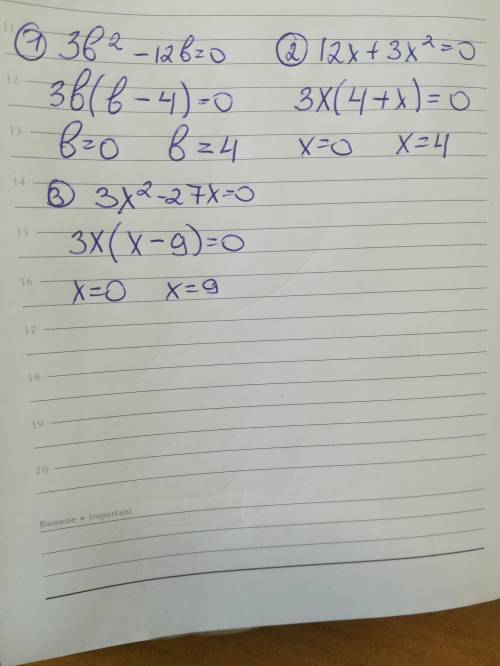 11
① 3b² - 12b = 0
12
3b(b - 4) = 0
13
b = 0 b = 4
② 12x + 3x² = 0
3x(4 + x) = 0
x = 0 x = 4
14
③ 3x² - 27x = 0
15
3x(x - 9) = 0
16
x = 0 x = 9
17
18
19
20
Важное • Important